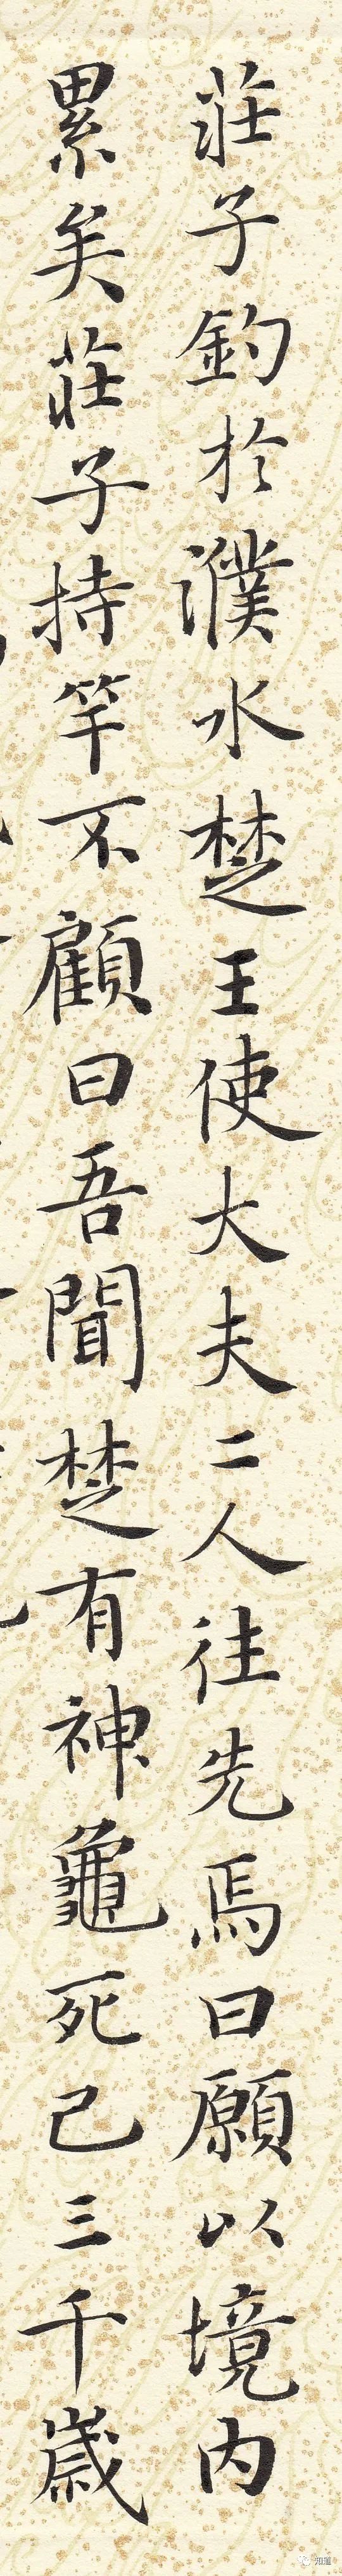 莊子釣於濮水楚王使大夫二人往先焉曰願以境內
累矣莊子持竿不顧曰吾聞楚有神龜死已三千歲
知蓮